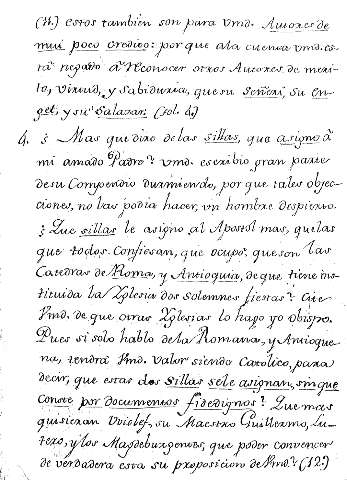 (11.) estos tambien son para Vmd. Autores de
mui poco credito: por que a la cuenta Vmd. es-
tà negado à reconocer otros Autores de meri-
to, virtud, y sabiduria, que su Señeri, su En-
gel, y su Salazar (fol. 4.)
4. ¿ Mas que dire de las sillas, que asigno à
mi amado Padre? Vmd. escribio gran parte
de su Compendio durmiendo, por que tales objec-
ciones, no las podia hacer, un hombre despierto.
¿ Que sillas le asigno al Apostol mas, que las
que todos Confiesan, que ocupò: que son las
Catedras de Roma, y Antioquia, de que tiene ins-
tituida la Yglesia dos solemnes fiestas?
Vmd. de que otras Yglesias lo hago yo obispo.
Pues si solo hablo de la Romana, y Antioque-
na, tendrà Vmd. valor siendo Catolico, para
decir, que estas dos sillas se le asignan, sin que
Conste por documentos fidedignos? Que mas
quisieran Uviclef, su Maestro Guillermo, Lu-
tero, y los Magdeburgenses, que poder convencer
de verdadera esta su proposicion de Vmd.? (12.)